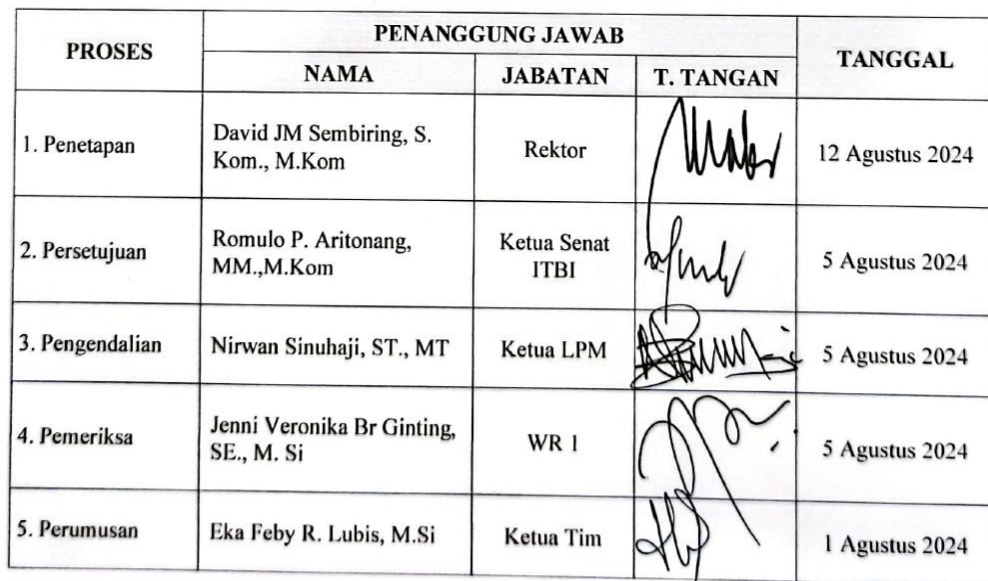 PROSES
PENANGGUNG JAWAB
TANGGAL
NAMA
JABATAN
T. TANGAN
1. Penetapan
David JM Sembiring, S.
Kom., M.Kom
Rektor
12 Agustus 2024
2. Persetujuan
Romulo P. Aritonang,
MM.,M.Kom
Ketua Senat
ITBI
5 Agustus 2024
3. Pengendalian
Nirwan Sinuhaji, ST., MT
Ketua LPM
5 Agustus 2024
4. Pemeriksa
Jenni Veronika Br Ginting,
SE., M. Si
WR 1
5 Agustus 2024
5. Perumusan
Eka Feby R. Lubis, M.Si
Ketua Tim
1 Agustus 2024